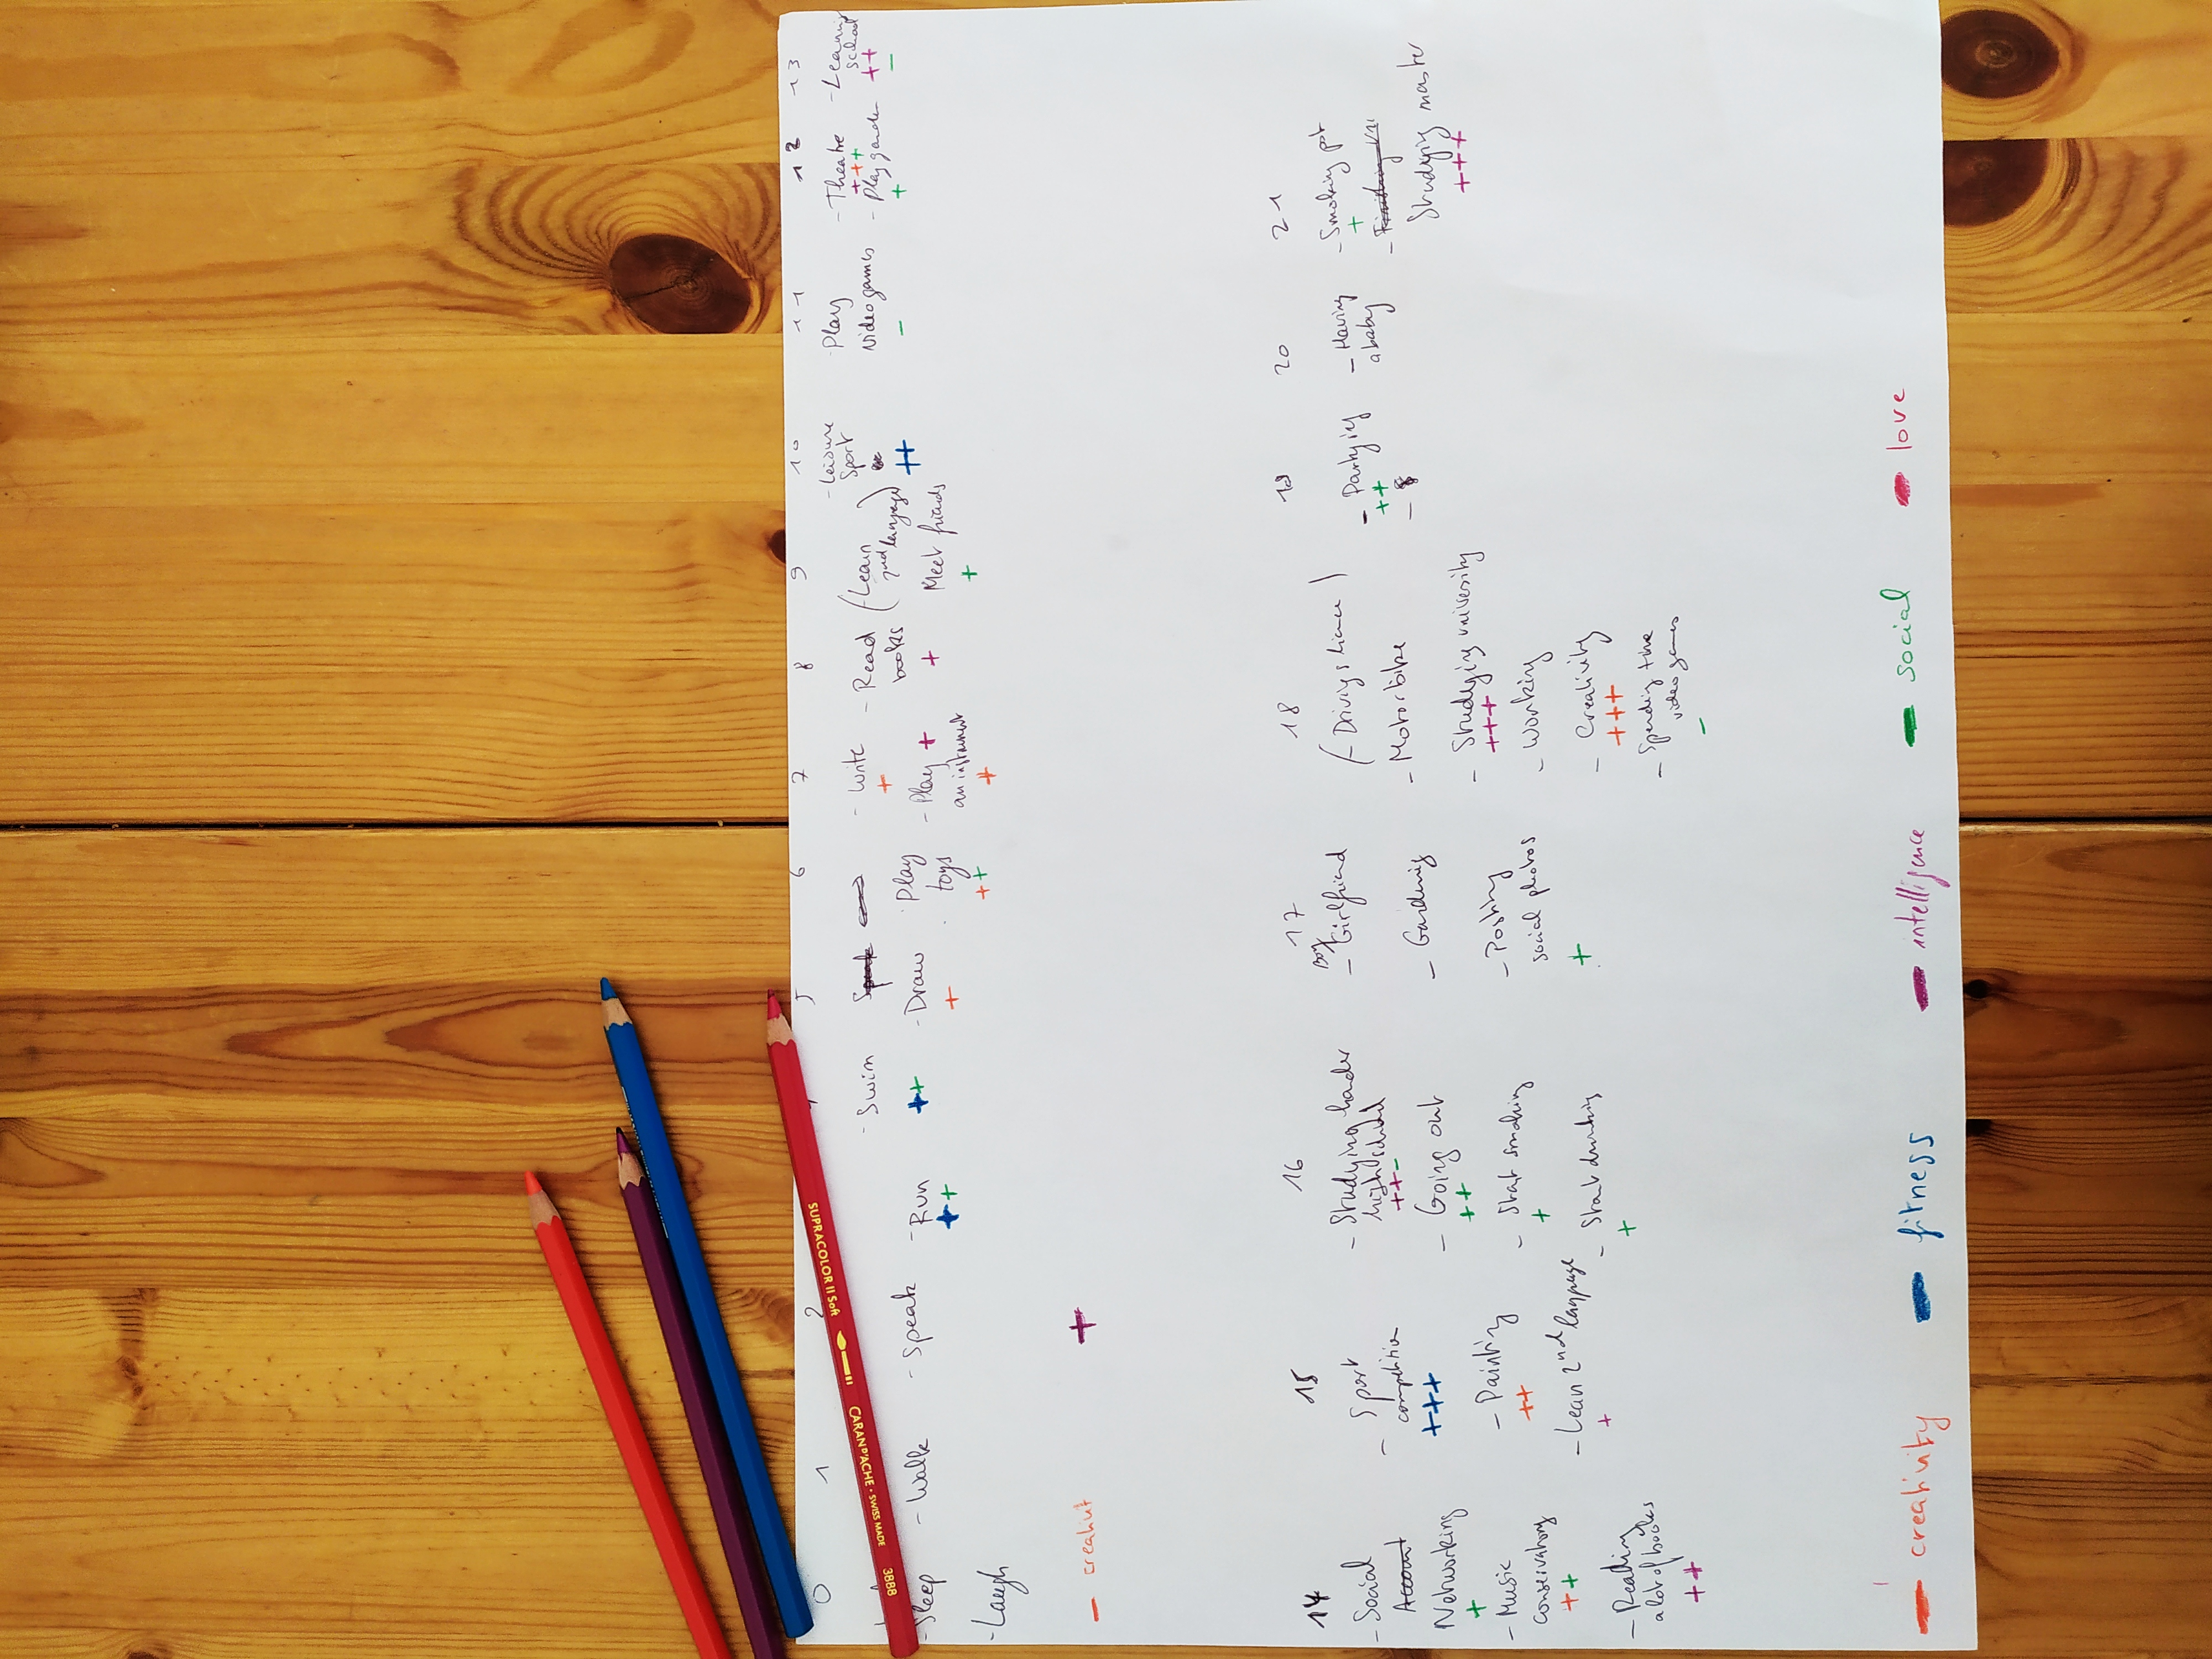 0 1 2 5 6 7 8 9 10 11 12 13
SUPRACOLOR II Soft
CARAN D'ACHE · SWISS MADE 3888
- Sleep
- Laugh
- Walk
- Speak
- Run
+ +
- Swim
+ +
Speak
- Draw
+
Play
toys
+ +
- Write
+
- Play +
an instrument
+
- Read
books
+
(- Learn
2nd language)
Meet friends
+
- Leisure
Sport
++
- Play
videogames
-
- Theatre
+ + +
- Play garden
+
- Learning
school
++
-
- creativit
+
14 15 16 17 18 19 20 21
- Social
Account
Networking
+
- Music
conservatory
+ +
- Reading
a lot of books
++
- Sport
competition
+++
- Painting
++
- Lean 2nd language
+
- Studying harder
high school
++-
- Going out
++
- Start smoking
+
- Start drinking
+
Boy
- Girlfriend
- Gardening
- Posting
social photos
+
(- Driving licence)
- Motorbike
- Studying university
+++
- Working
- Creativity
+++
- Spending time
video games
-
- Partying
++
-
- Having
a baby
- Smoking pot
+
- Finishing uni
Studying master
+++
- creativity - fitness - intelligence - social - love